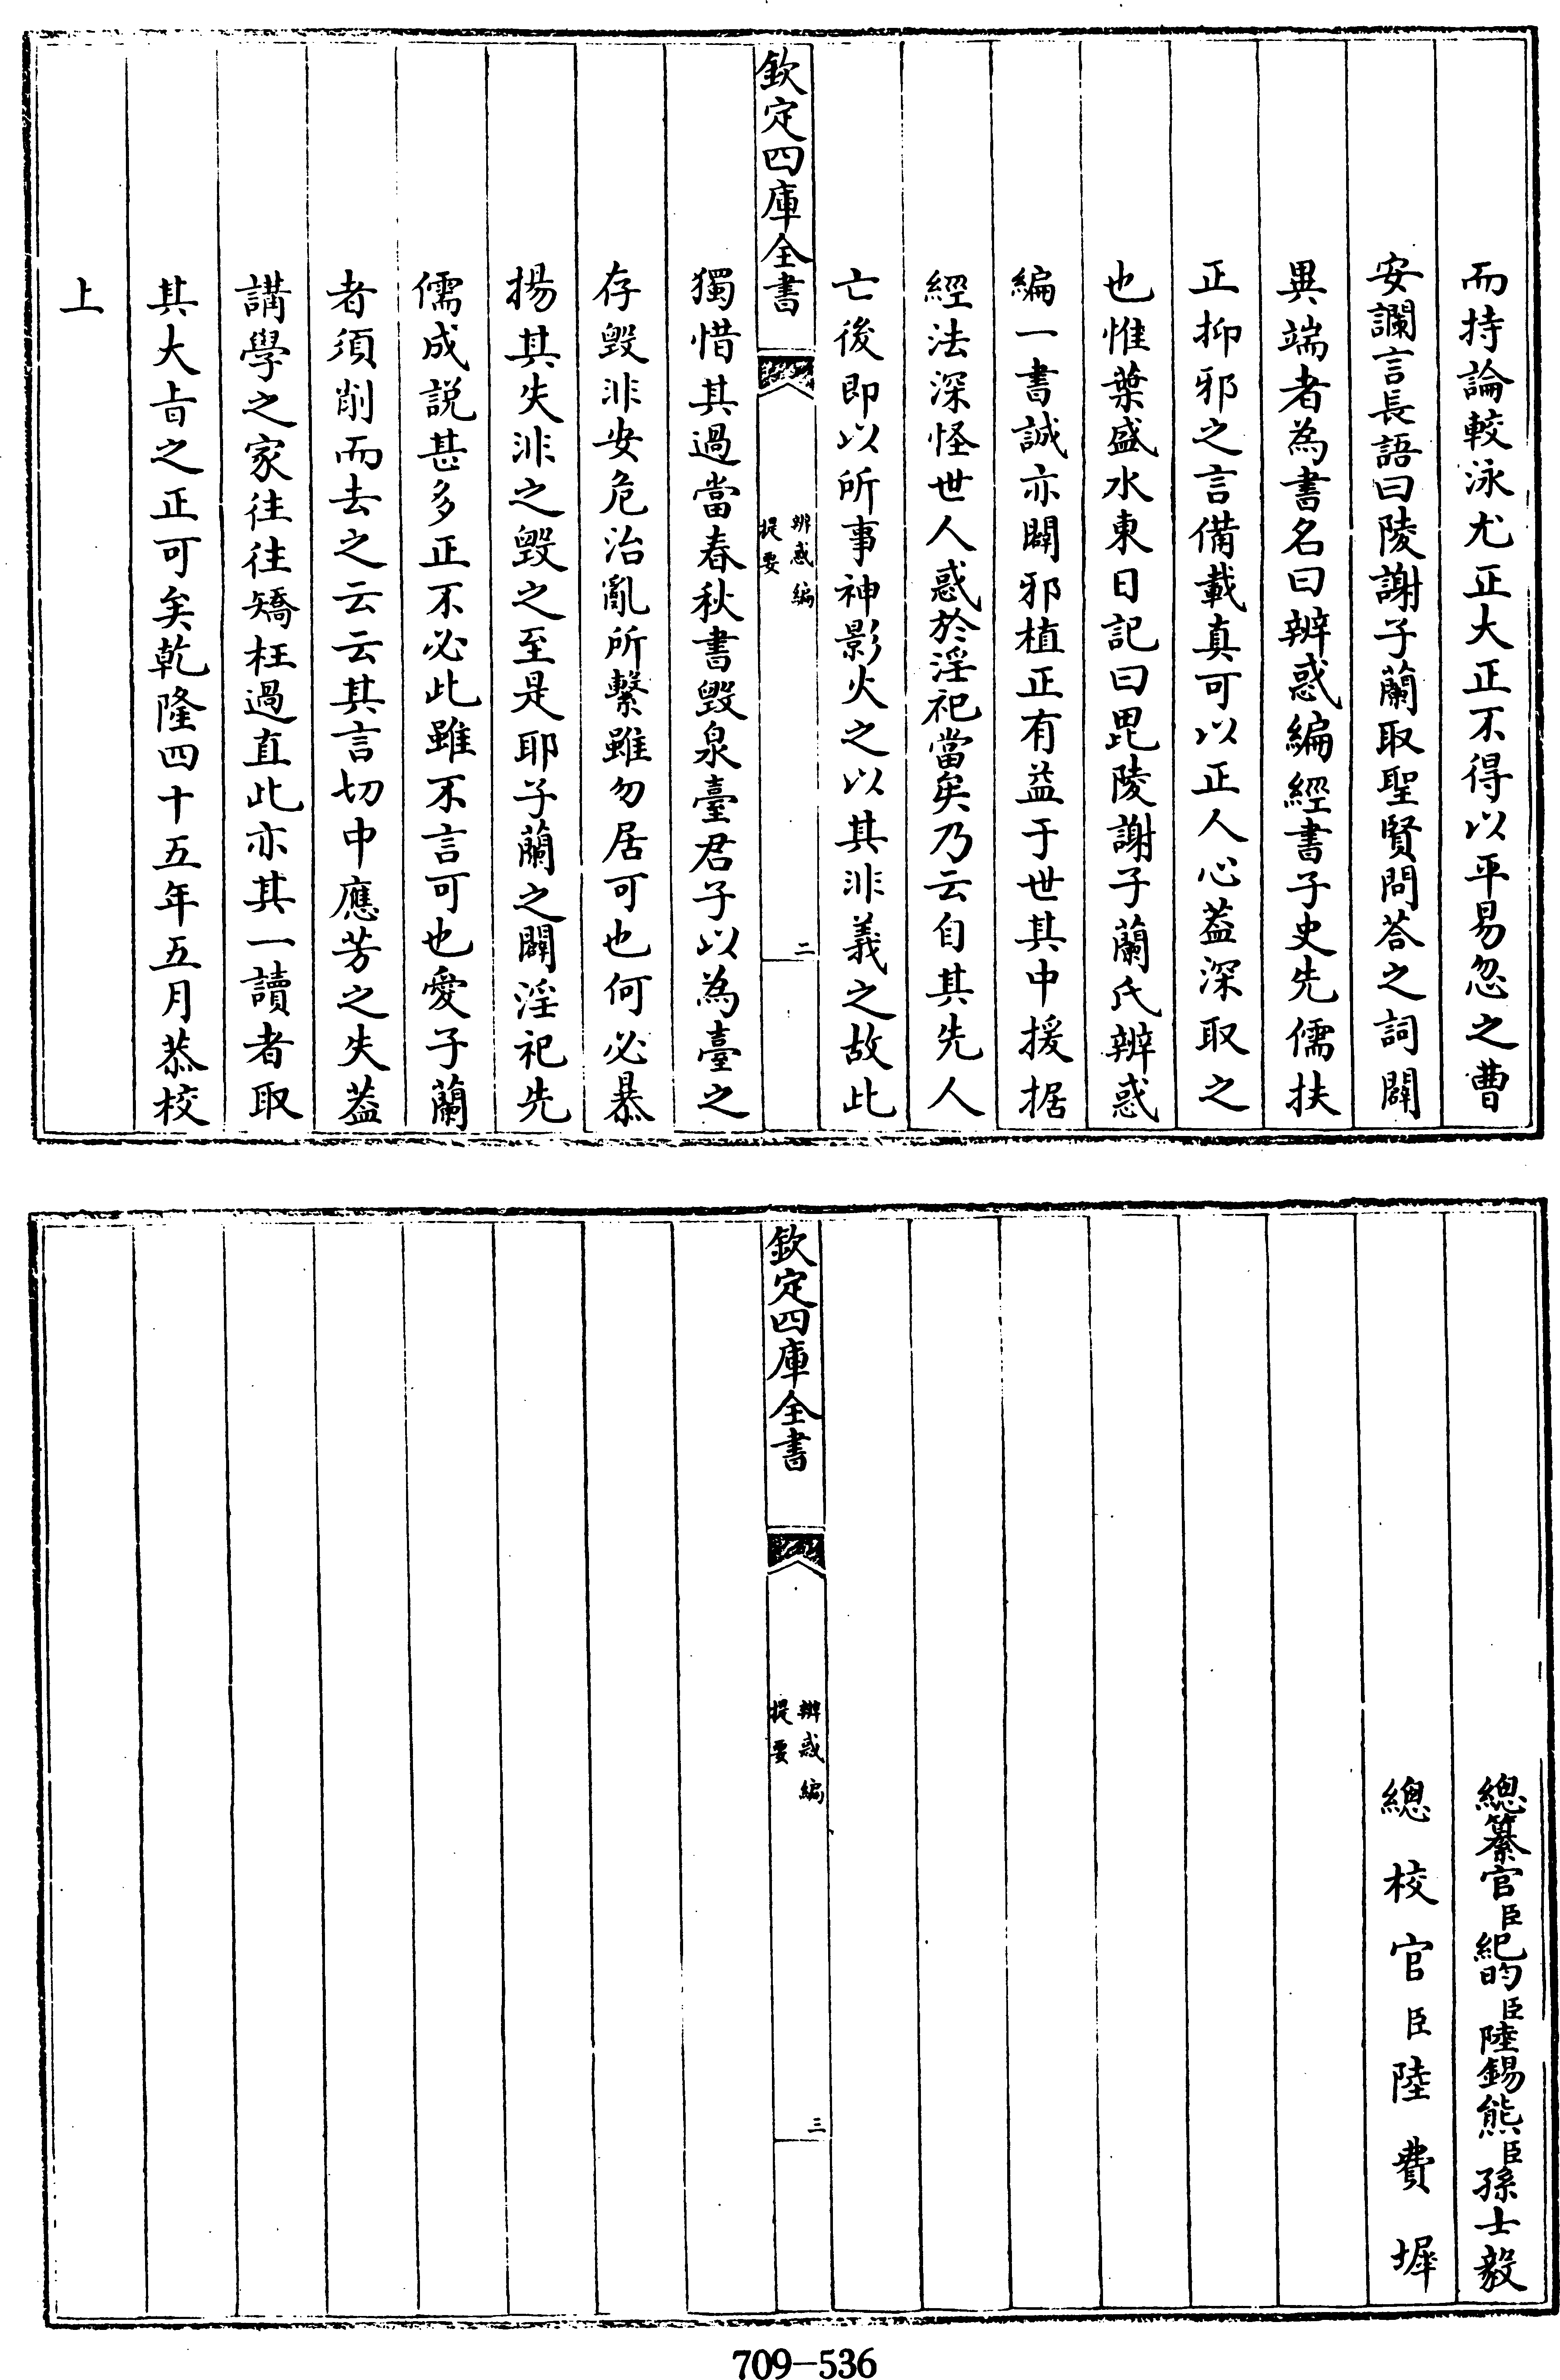 而持論較泳尤正大正不得以平易忽之曹
安讕言長語曰陵謝子蘭取聖賢問荅之詞闢
異端者為書名曰辨惑編經書子史先儒扶
正抑邪之言備載真可以正人心葢深取之
也惟葉盛水東日記曰毘陵謝子蘭氏辨惑
編一書誠亦闢邪植正有益于世其中援据
經法深怪世人惑於淫祀當矣乃云自其先人
亡後即以所事神影火之以其非義之故此
欽定四庫全書
辨惑編
提要
二
獨惜其過當春秋書毀泉臺君子以為臺之
存毀非安危治亂所繫雖勿居可也何必暴
揚其失非之毀之至是耶子蘭之闢淫祀先
儒成説甚多正不必此雖不言可也愛子蘭
者須削而去之云云其言切中應芳之失葢
講學之家往往矯枉過直此亦其一讀者取
其大㫖之正可矣乾隆四十五年五月恭校
上
總纂官臣紀昀臣陸錫熊臣孫士毅
總校官臣陸費墀
欽定四庫全書
辨惑編
提要
三
709-536